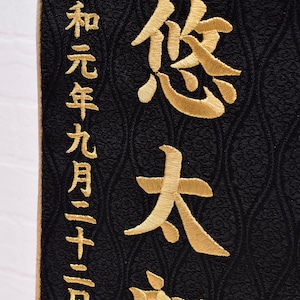 悠太
和元年九月二十二日